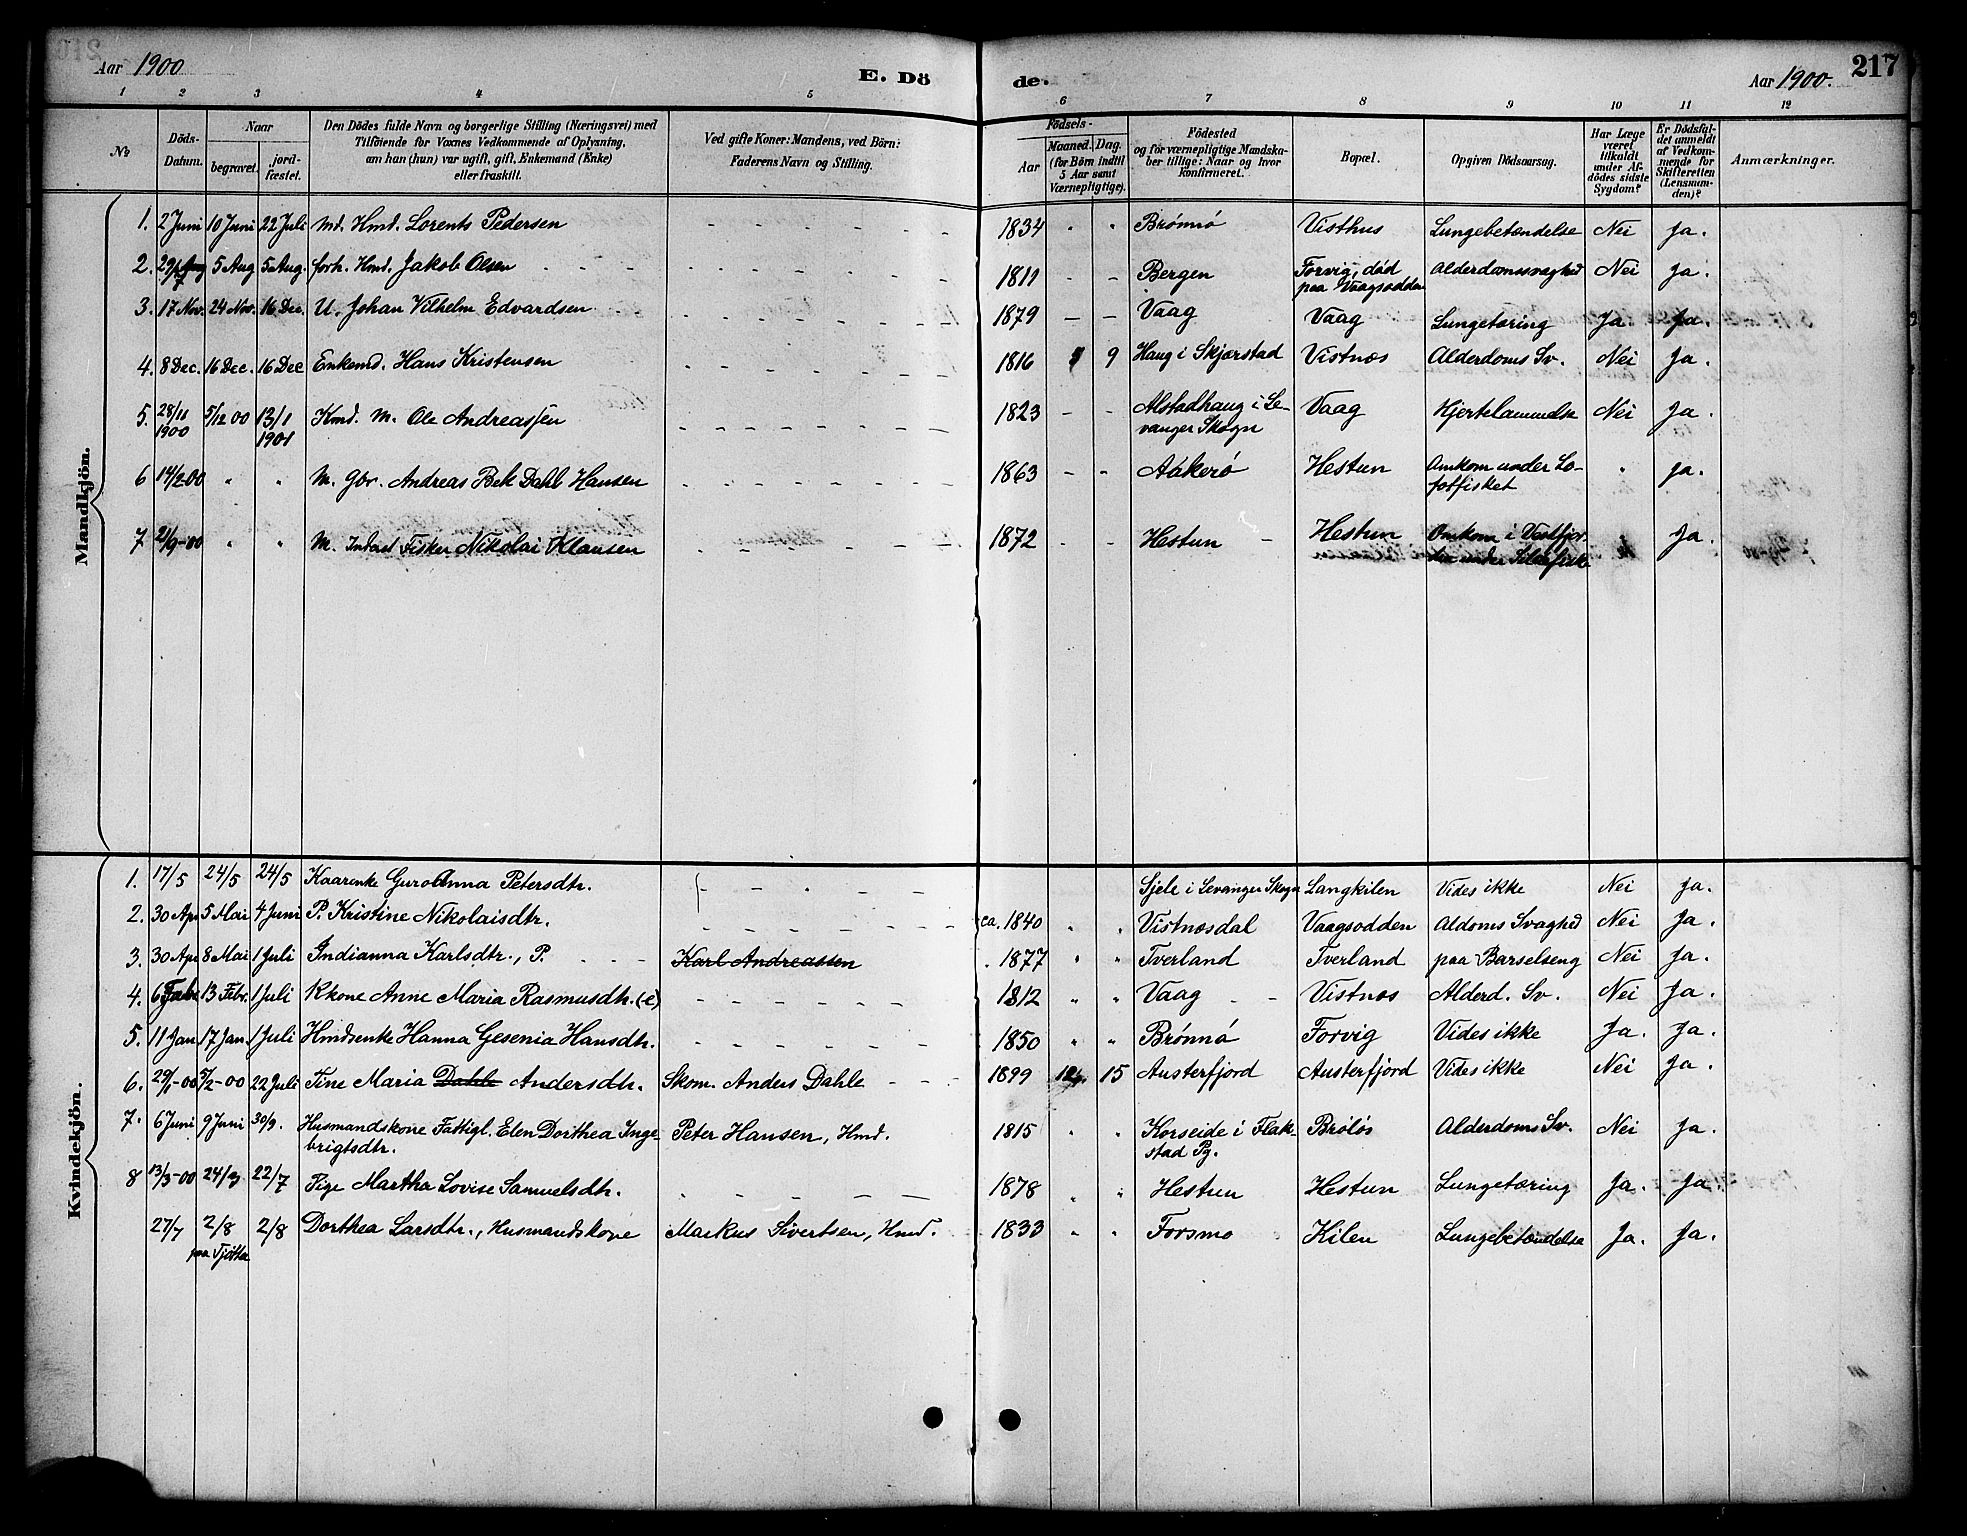 Aar 1900
E. Dö
de.
Aar 1900.
217
1 2 3 4 5 6 7 8 9 10 11 12
№
Döds-
Datum.
Naar
begravet.
jord-
fæstet.
Den Dödes fulde Navn og borgerlige Stilling (Næringsvei) med
Tilföiende for Voxnes Vedkommende af Oplysning,
om han (hun) var ugift, gift, Enkemand (Enke)
eller fraskilt.
Ved gifte Koner: Mandens, ved Börn:
Faderens Navn og Stilling.
Födsels-
Aar
Maaned. Dag.
(for Börn indtil
5 Aar samt
Værnepligtige).
Födested
og for værnepligtige Mandska-
ber tillige: Naar og hvor
konfirmeret.
Bopæl.
Opgiven Dödsaarsag.
Har Læge
været
tilkaldt
under Af-
dödes sidste
Sygdom?
Er Dödsfal-
det anmeldt
af Vedkom-
mende for
Skifteretten
(Lensman-
den)?
Anmærkninger.
Mandkjön.
1. 2 Juni 10 Juni 22 Juli Md. Hmd. Lorents Pedersen 1834 Brønnø Visthus Lungebetændelse Nei Ja.
2. 29/7 5 Aug 5 Aug. forh. Hmd. Jakob Olsen 1811 Bergen Forvig, død Alderdomssvaghed Nei Ja.
paa Vaagsodden
3. 17 Nov. 24 Nov. 16 Dec. U. Johan Vilhelm Edvardsen 1879 Vaag Vaag Lungetæring Ja. Ja.
4. 8 Dec. 16 Dec. 16 Dec Enkemd. Hans Kristensen 1816 9 Haug i Skjerstad Vistnæs Alderdoms Sv. Nei Ja.
5. 28/11 1900 5/12 00 13/1 1901 Kmd. M. Ole Andreassen 1823 Alstadhaug i Le- Vaag Hjertelammelse Nei Ja.
vanger Skogn
6 14/2 00 " " M. Gbr. Andreas Bek Dahl Hansen 1863 Aakerø Hestun Omkom under Lo- " Ja.
fotfisket
7 21/9-00 " " M. Inderst Fisker Nikolai Klausen 1872 Hestun Hestun Omkom i Vestfjor- Ja.
den under Sildefiske
Kvindekjön.
1. 17/5 24/5 24/5 Kaarenke Guroanna Petersdtr. Sjele i Levanger Skogn Langkilen Vides ikke Nei Ja.
2. 30 Apr 5 Mai 4 Juni P. Kristine Nikolaisdtr. ca. 1840 " " Vistnæsdal Vaagsodden Aldoms Svaghed Nei Ja.
3. 30 Apr 8 Mai 1 Juli Indianna Karlsdtr., P. Karl Andreassen 1877 " " Tverland Tverland paa Barselseng Nei Ja.
4. 6 Febr. 13 Febr. 1 Juli Kkone Anne Maria Rasmusdtr. (e) 1812 " " Vaag Vistnæs Alderd. Sv. Nei Ja.
5. 11 Jan 17 Jan. 1 Juli Hmdsenke Hanna Gesenia Hansdtr. 1850 " " Brønnø Forvig Vides ikke Ja. Ja.
6. 29/1-00 5/2-00 22 Juli Tine Maria Dahle Andersdtr. Skom. Anders Dahle 1899 12 15 Austerfjord Austerfjord Vides ikke Nei Ja.
7. 6 Juni 9 Juni 30/9. Husmandskone Fattigl. Elen Dorithea Inge- Peter Hansen, Hmd. 1815 " " Korseide i Flak- Brøløs Alderdoms Sv. Nei Ja.
brigtsdtr. stad Pg.
8 13/3-00 24/3 22/7 Pige Martha Lovise Samuelsdtr. 1878 " " Hestun Hestun Lungetæring Ja. Ja
27/7 2/8 2/8 Dorthea Larsdtr., Husmandskone Markus Sivertsen, Hmd. 1833 " " Forsmo Kilen Lungebetændelse Ja. Ja.
paa Tjøtta